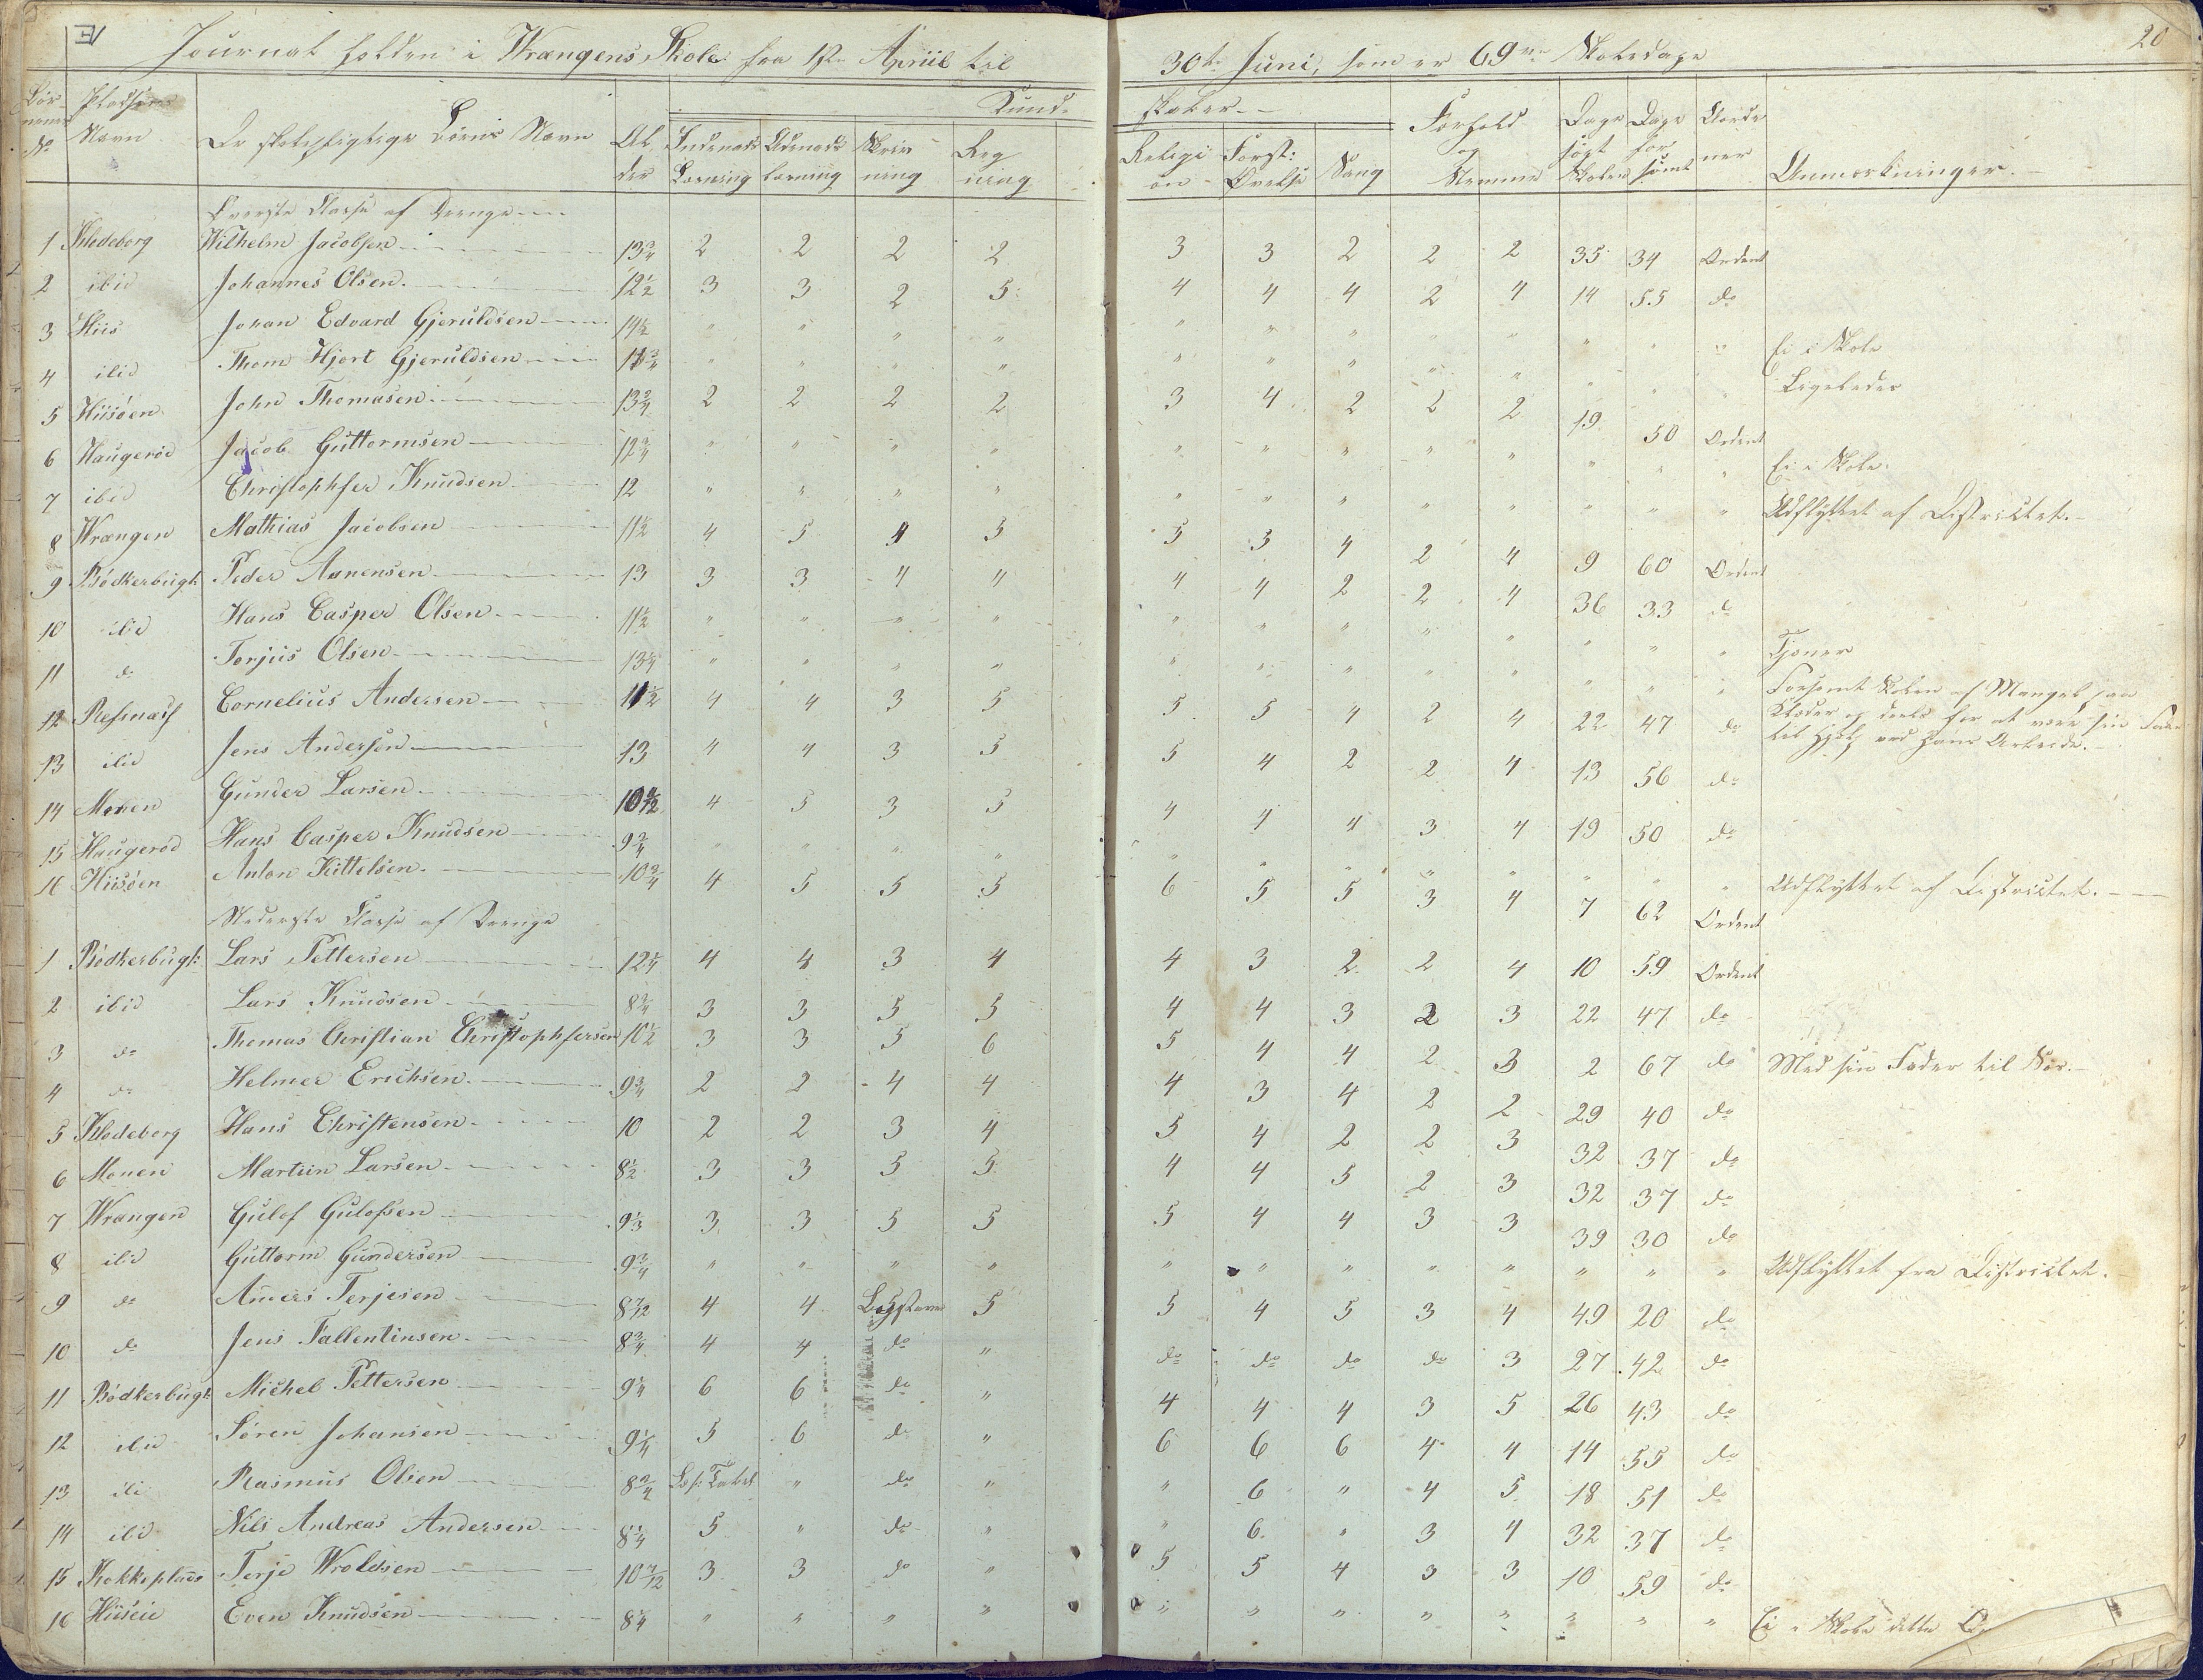 20
Journal holden i Wrangens Skole fra 1ste April til 30te Juni, som er 69 Skoledage
Børnenes No | Pladsens Navn | De skolepligtige Børns Navn | Alder | Kundskaber | Forhold og Nemme | Dage søgt Skolen | Dage forsømt | Anmærkninger
Indenads Læsning | Udenads Læsning | Skrivning | Regning | Religion | Forst: Øvelse | Sang
Øverste Classe af Drenge
1 Klodeborg Wilhelm Jacobsen 13 3/4 2 2 2 2 3 3 2 2 2 35 34 Ordent
2 ibid Johannes Olsen 12 1/2 3 3 2 5 4 4 4 2 4 14 55 do
3 Hiis Johan Edvard Gjeruldsen 14 1/2 " " " " " " " " " " " " Ei i Skole
4 ibid Thom Hjort Gjeruldsen 11 3/4 " " " " " " " " " " " " Ligeledes
5 Hiisøen John Thomasen 13 3/4 2 2 2 2 3 4 2 2 2 19 50 Ordent
6 Haugerød Jacob Guttormsen 12 3/4 " " " " " " " " " " " " Ei i Skole
7 ibid Christophfer Knudsen 12 " " " " " " " " " " " " Udflyttet af Districtet.
8 Wrangen Mathias Jacobsen 11 1/2 4 5 4 5 5 5 4 2 4 9 60 Ordent
9 Bødkerbugt: Peder Aanensen 13 3 3 4 4 4 4 2 2 4 36 33 do
10 ibid Hans Casper Olsen 11 1/2 " " " " " " " " " " " " Tjener
11 do Terjus Olsen 13 1/4 " " " " " " " " " " " "
12 Resmæss Cornelius Andersen 11 1/2 4 4 3 5 5 5 4 2 4 22 47 do Forsømt Skolen af Mangel paa Klæder og deels for at være sin Fader til Hjelp ved hans Arbeide.
13 ibid Jens Anderson 13 4 4 3 5 5 4 2 2 4 13 56 do
14 Monen Gunder Larsen 10 4 5 3 5 4 4 4 3 4 19 50 do
15 Haugerød Hans Casper Knudsen 9 3/4 " " " " " " " " " " " " Udflyttet af Districtet.
16 Hiisøen Anton Kittelsen 10 3/4 4 5 5 5 6 5 5 3 4 7 62 Ordent
Nederste Classe af Drenge
1 Bødkerbugt: Lars Pettersen 12 1/4 4 4 3 4 4 3 2 2 4 10 59 Ordent
2 ibid Lars Knudsen 8 3/4 3 3 5 5 4 4 3 2 3 22 47 do
3 do Thomas Christian Christophfersen 10 1/2 3 3 5 6 5 4 4 2 3 2 67 do Med sin Fader til Søs.
4 do Helmer Erichsen 9 3/4 2 2 4 4 4 3 4 2 2 29 40 do
5 Klodeborg Hans Christensen 10 2 2 3 4 5 4 2 2 3 32 37 do
6 Monen Martin Larsen 8 1/2 3 3 5 5 4 4 5 2 3 32 37 do
7 Wrangen Gulof Gulofsen 9 1/3 3 3 5 5 5 4 4 3 3 39 30 do
8 ibid Guttorm Gundersen 9 3/4 " " " " " " " " " " " " Udflyttet fra Districtet.
9 do Anders Terjesen 8 7/12 4 4 Bogstaver 5 5 4 5 3 4 49 20 do
10 do Jens Tallentinsen 8 3/4 4 4 do " do do do do 3 27 42 do
11 Bødkerbugt: Michel Pettersen 9 1/4 6 6 do " 4 4 4 3 5 26 43 do
12 ibid Søren Johansen 9 1/4 5 6 do " 6 6 6 4 4 14 55 do
13 ibi Rasmus Olsen 8 3/4 " do " " 6 " 4 5 18 51 do
14 ibid Nils Andreas Andersen 8 1/4 5 " do " " 6 " 3 4 32 37 do
15 Kokkeplads Terje Wroldsen 10 7/12 3 3 do " 5 5 4 3 3 10 59 do
16 Hiiseie Even Knudsen 8 1/4 " " " " " " " " " " " " Ei i Skole dette